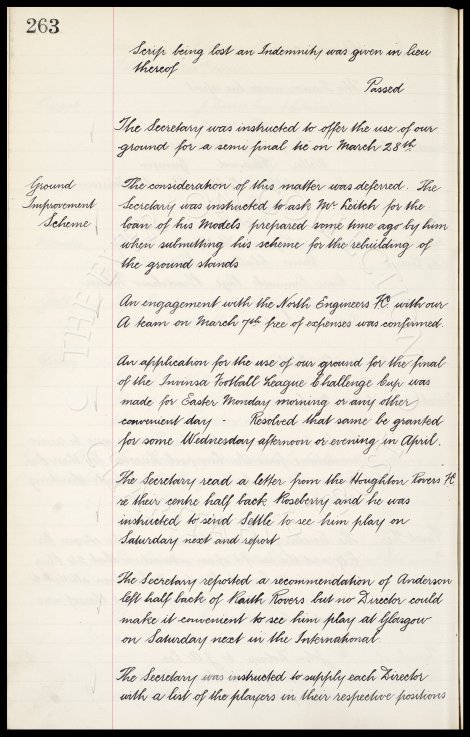 263
Scrip being lost an Indemnity was given in lieu
thereof
Passed
The Secretary was instructed to offer the use of our
ground for a semi final tie on March 28th
Ground
Improvement
Scheme
The consideration of this matter was deferred. The
Secretary was instructed to ask Mr. Leitch for the
loan of his Models prepared some time ago by him
when submitting his scheme for the rebuilding of
the ground stands
An engagement with the North Engineers F.C. with our
A team on March 7th free of expenses was confirmed.
An application for the use of our ground for the final
of the Football League Challenge Cup was
made for Easter Monday morning or any other
convenient day - Resolved that same be granted
for some Wednesday afternoon or evening in April.
The Secretary read a letter from the Houghton Rovers FC
re their centre half back Roseberry and he was
instructed to send Settle to see him play on
Saturday next and report
The Secretary reported a recommendation of Anderson
left half back of Raith Rovers but no Director could
make it convenient to see him play at Glasgow
on Saturday next in the International.
The Secretary was instructed to supply each Director
with a list of the players in their respective positions